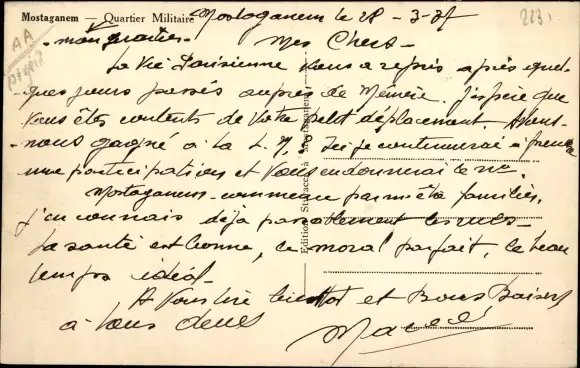 Mostaganem — Quartier Militaire
Mostaganem le 28-3-37
- mon quartier -
Mes Chers -
La Vie Parisienne vous a repris après quel-
ques jours passés auprès de Mémère. J'espère que
vous êtes contents de votre petit déplacement. Avons-
nous gagné à la L. N. Ici je continuerai à prendre
une participation et vous en donnerai le no.
Mostaganem commence par m'être familier,
j'en connais déjà passablement les rues -
La santé est bonne, le moral parfait, le beau
temps idéal -
A vous lire bientôt et Bons Baisers
à tous deux
Marcel
Edition Stéracci à Mostaganem
AA
2831